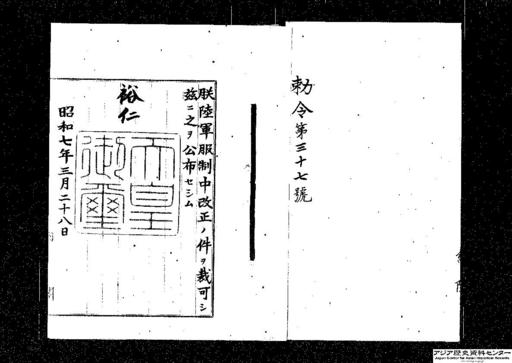 勅令第三十七號
朕陸軍服制中改正ノ件ヲ裁可シ
茲ニ之ヲ公布セシム
裕仁
天皇御璽
昭和七年三月二十八日
アジア歴史資料センター
Japan Center for Asian Historical Records